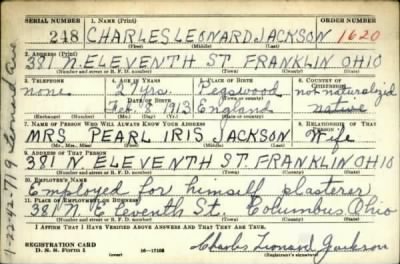 SERIAL NUMBER 1. NAME (Print)
248 CHARLES LEONARD JACKSON 1620
(First) (Middle) (Last)
2. ADDRESS (Print)
381 N. ELEVENTH ST FRANKLIN OHIO
(Number and street or R. F. D. number) (Town) (County) (State)
3. TELEPHONE 4. AGE IN YEARS 5. PLACE OF BIRTH 6. COUNTRY OF CITIZENSHIP
none 27 yrs. Pegswood not naturalized
DATE OF BIRTH (Town or county)
Feb 28 1913 England native
7. NAME OF PERSON WHO WILL ALWAYS KNOW YOUR ADDRESS 8. RELATIONSHIP OF THAT PERSON
MRS PEARL IRIS JACKSON Wife
(Mr., Mrs., Miss) (First) (Middle) (Last)
9. ADDRESS OF THAT PERSON
381 N. ELEVENTH ST. FRANKLIN OHIO
(Number and street or R. F. D. number) (Town) (County) (State)
10. EMPLOYER'S NAME
Employed for himself plasterer
11. PLACE OF EMPLOYMENT OR BUSINESS
381 N. Eleventh St. Columbus Ohio
(Number and street or R. F. D. number) (Town) (County) (State)
I AFFIRM THAT I HAVE VERIFIED ABOVE ANSWERS AND THAT THEY ARE TRUE.
REGISTRATION CARD
D. S. S. Form 1
(over) Charles Leonard Jackson